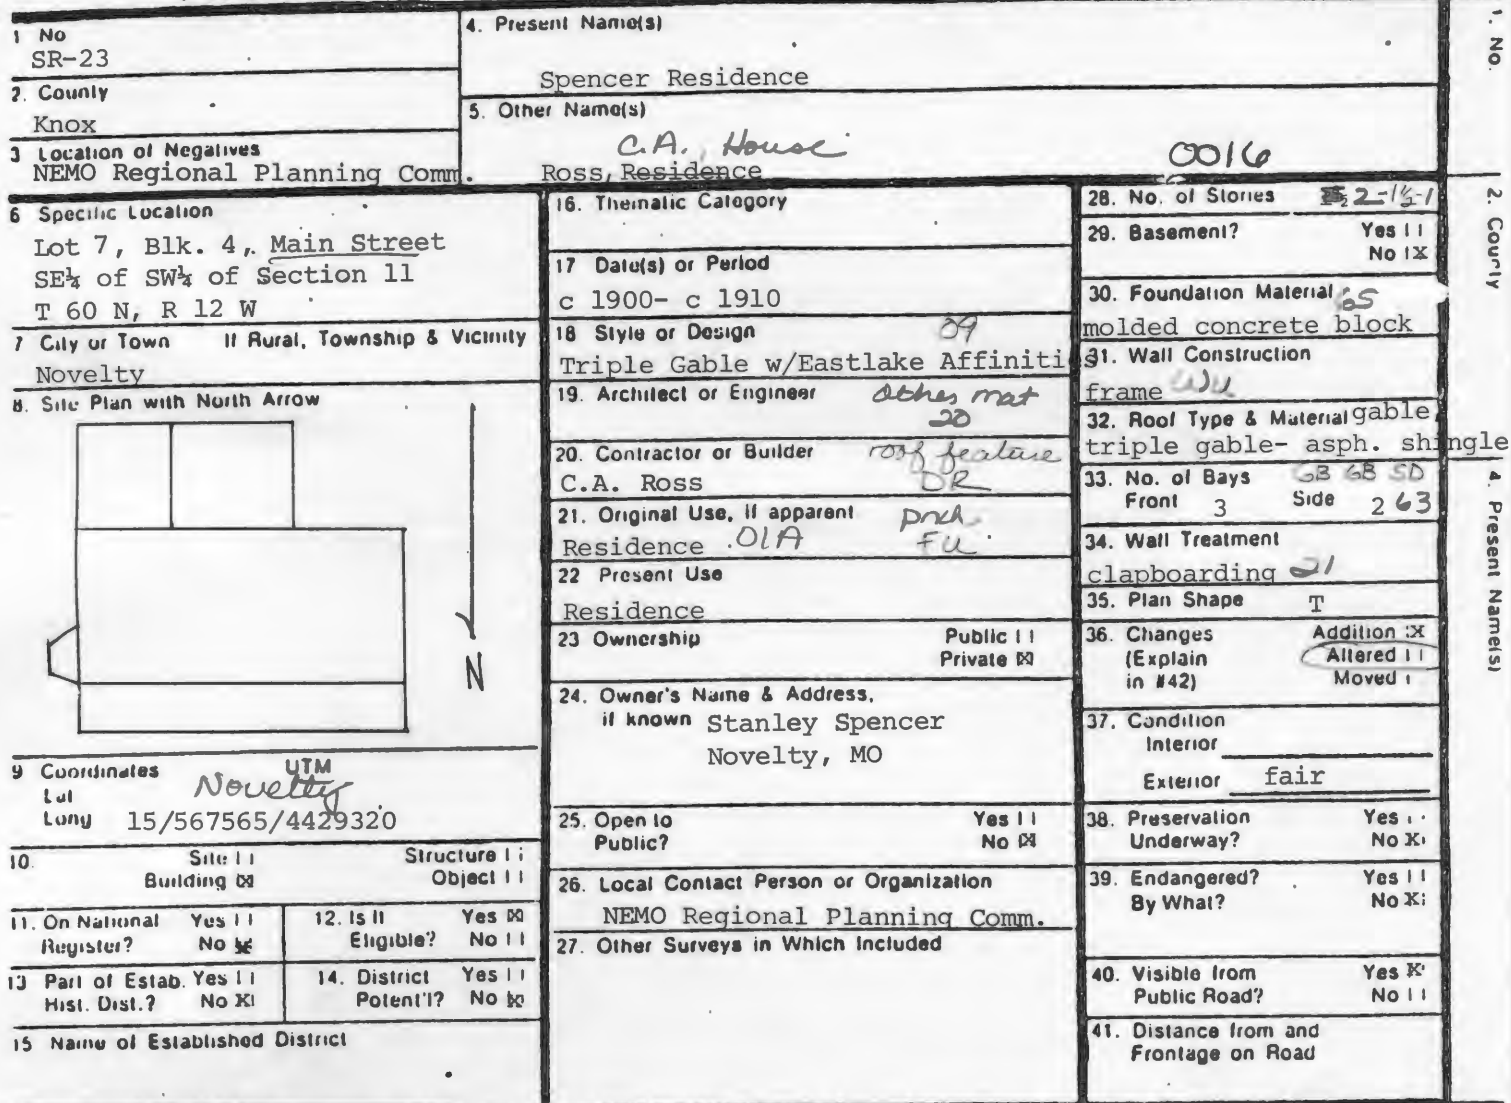 1 No
SR-23
2. County
Knox
3 Location of Negatives
NEMO Regional Planning Comm.
4. Present Name(s)
Spencer Residence
5. Other Name(s)
C.A., House
Ross, Residence
0016
6 Specific Location
Lot 7, Blk. 4, Main Street
SE¼ of SW¼ of Section 11
T 60 N, R 12 W
7 City or Town If Rural, Township & Vicinity
Novelty
8. Site Plan with North Arrow
N
9 Coordinates UTM
Lat
Long
Novelty
15/567565/4429320
10. Site | | Structure | |
Building [X] Object | |
11. On National Register? Yes | | No [X]
12. Is It Eligible? Yes [X] No | |
13 Part of Estab. Hist. Dist.? Yes | | No X|
14. District Potent'l? Yes | | No [X]
15 Name of Established District
16. Thematic Category
17 Date(s) or Period
c 1900- c 1910
18 Style or Design 09
Triple Gable w/Eastlake Affinities
19. Architect or Engineer
Other mat
20
20. Contractor or Builder roof feature
C.A. Ross DR
21. Original Use, if apparent prch.
Residence 01A FU
22 Present Use
Residence
23 Ownership Public | |
Private [X]
24. Owner's Name & Address,
if known Stanley Spencer
Novelty, MO
25. Open to Yes | |
Public? No [X]
26. Local Contact Person or Organization
NEMO Regional Planning Comm.
27. Other Surveys in Which Included
28. No. of Stories 2-1½-1
29. Basement? Yes | |
No |X
30. Foundation Material 65
molded concrete block
31. Wall Construction
frame WU
32. Roof Type & Material gable,
triple gable- asph. shingle
33. No. of Bays GB GB SD
Front 3 Side 2 63
34. Wall Treatment
clapboarding 21
35. Plan Shape T
36. Changes Addition X
(Explain Altered | |
in #42) Moved |
37. Condition
Interior
Exterior fair
38. Preservation Yes
Underway? No X
39. Endangered? Yes | |
By What? No X
40. Visible from Yes X
Public Road? No | |
41. Distance from and
Frontage on Road
1. No.
2. County
4. Present Name(s)